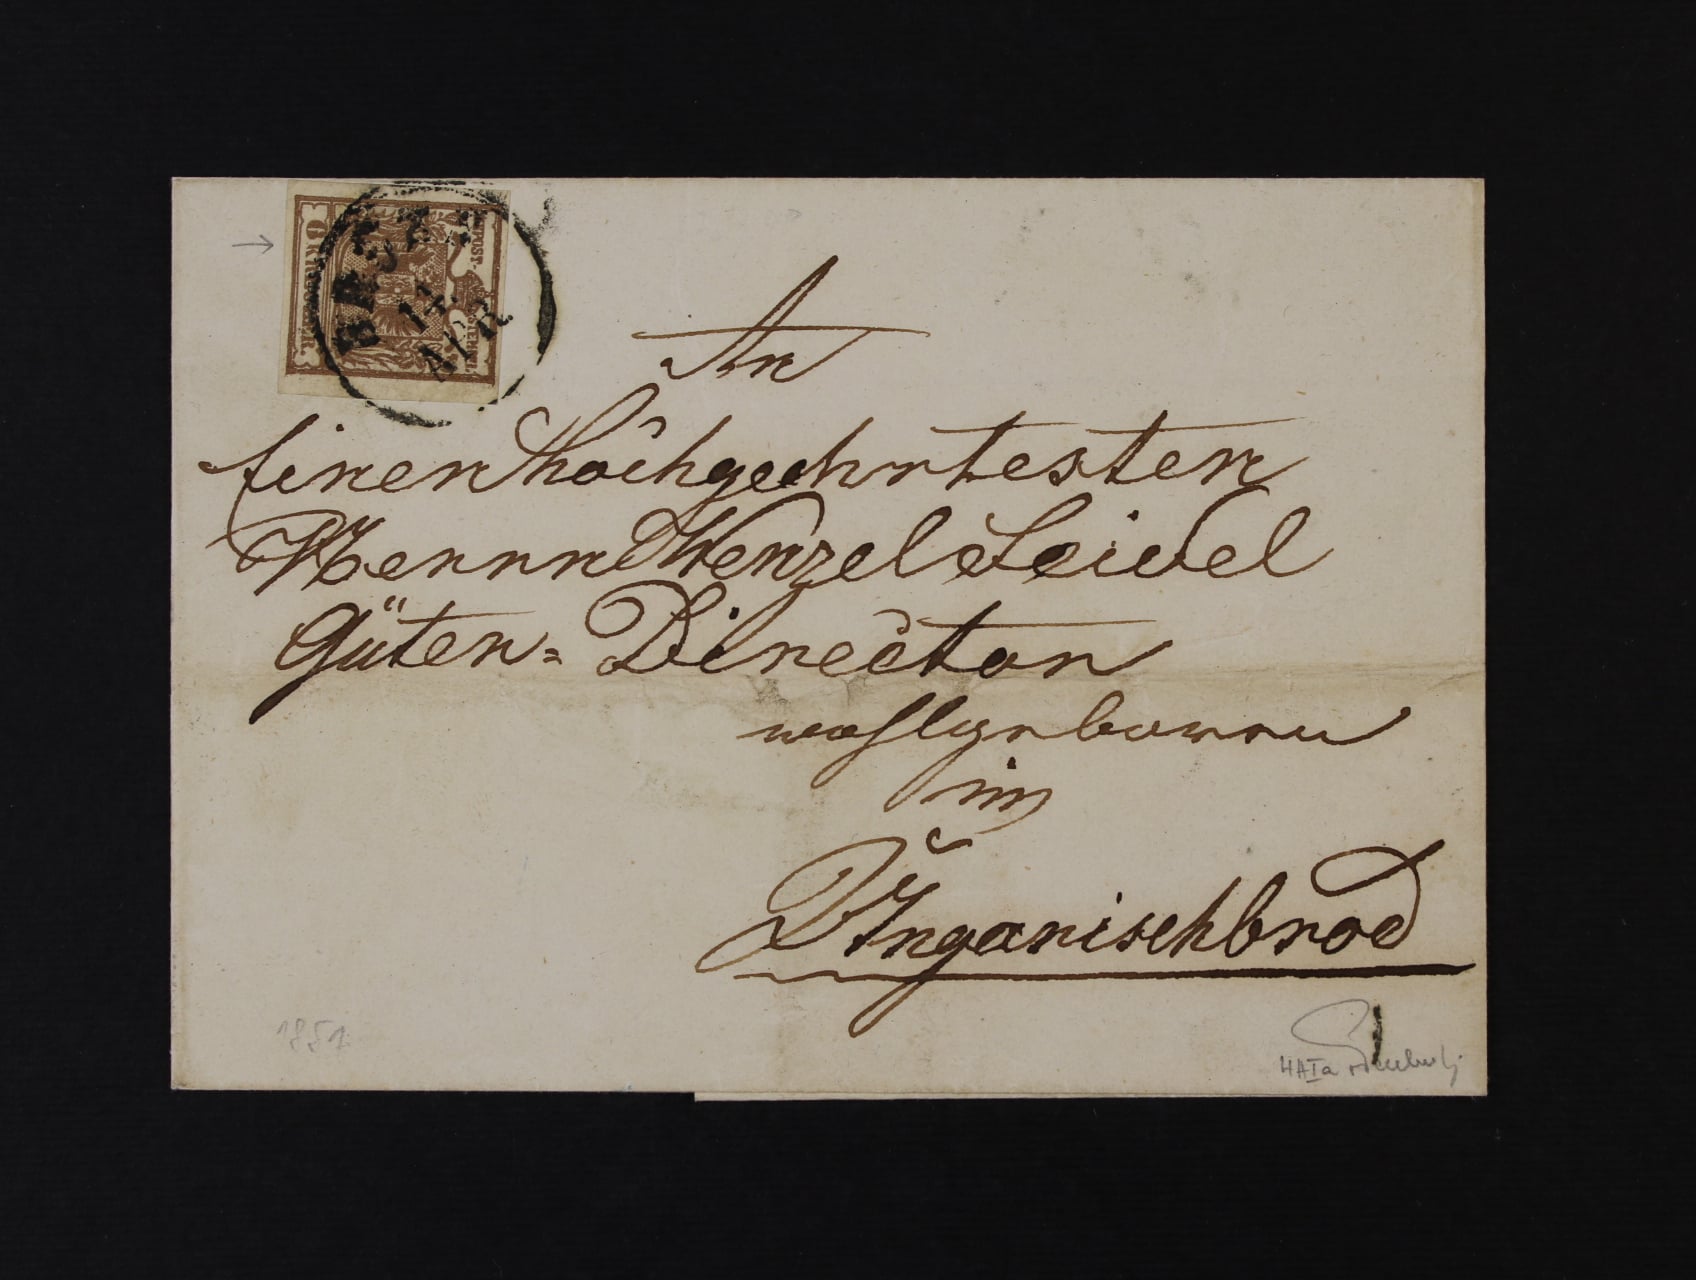 K.K.POST-STEMPEL
6 KREUZER
14.
APR.
An
Einen Hochgeehrtesten
Herrn Wenzel Seidel
Güter= Director
wohlgeboren
in
Ungarischbrod
1851
HAIa